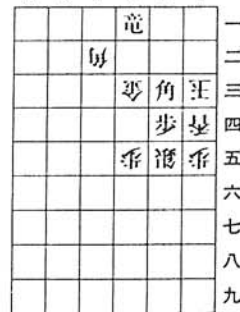 竜 一
角 二
金 角 王 三
歩 香 四
歩 銀 歩 五
六
七
八
九